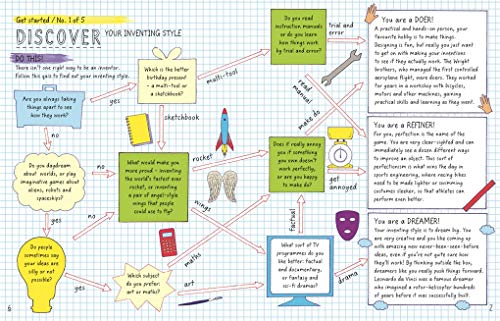 Get started / No. 1 of 5
DISCOVER
YOUR INVENTING STYLE
DO THIS!
There isn't one right way to be an inventor.
Follow this quiz to find out your inventing style.
Are you always taking
things apart to see
how they work?
yes
no
Which is the better
birthday present
- a multi-tool or
a sketchbook?
multi-tool
sketchbook
Do you read
instruction manuals
or do you learn
how things work
by trial and error?
trial and
error
read
manual
You are a DOER!
A practical and hands-on person, your
favourite hobby is to make things.
Designing is fun, but really you just
want to get on with making your inventions
to see if they actually work. The Wright
brothers, who managed the first controlled
aeroplane flight, were doers. They worked
for years in a workshop with bicycles,
motors and other machines, gaining
practical skills and learning as they went.
Do you daydream
about worlds, or play
imaginative games about
aliens, robots and
spaceships?
no
yes
What would make you
more proud - inventing
the world's fastest ever
rocket, or inventing
a pair of angel-style
wings that people
could use to fly?
rocket
wings
Does it really annoy
you if something
you own doesn't
work perfectly,
or are you happy
to make do?
make do
get
annoyed
You are a REFINER!
For you, perfection is the name of the
game. You are very clear-sighted and can
immediately see a dozen different ways
to improve an object. This sort of
perfectionism is what wins the day in
sports engineering, where racing bikes
need to be made lighter or swimming
costumes sleeker, so that athletes can
perform even better.
Do people
sometimes say
your ideas are
silly or not
possible?
no
yes
Which subject
do you prefer:
art or maths?
maths
art
What sort of TV
programmes do you
like better: factual
and documentary,
or fantasy and
sci-fi dramas?
factual
drama
You are a DREAMER!
Your inventing style is to dream big. You
are very creative and you like coming up
with amazing new never-been-seen-before
ideas, even if you're not quite sure how
they'll work! By thinking outside the box,
dreamers like you really push things forward.
Leonardo da Vinci was a famous dreamer
who imagined a rotor-helicopter hundreds
of years before it was successfully built.
6
7